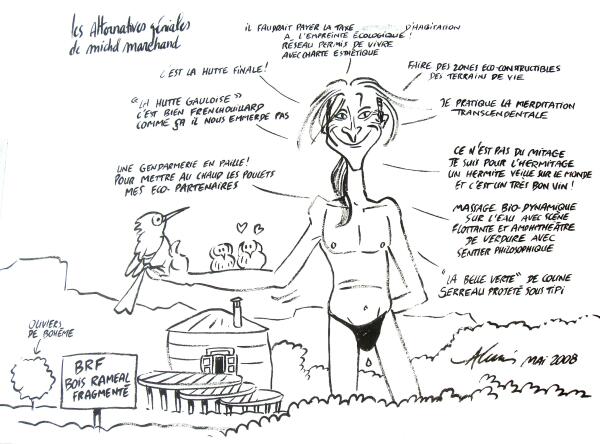 les Alternatives géniales
de michel marchand
IL FAUDRAIT PAYER LA TAXE D'HABITATION
A L'EMPREINTE ÉCOLOGIQUE !
RÉSEAU PERMIS DE VIVRE
AVEC CHARTE ESTHÉTIQUE
C'EST LA HUTTE FINALE !
FAIRE DES ZONES ECO-CONSTRUCTIBLES
DES TERRAINS DE VIE
"LA HUTTE GAULOISE"
C'EST BIEN FRENCHOUILLARD
COMME ÇA IL NOUS EMMERDE PAS
JE PRATIQUE LA MERDITATION
TRANSCENDENTALE
UNE GENDARMERIE EN PAILLE !
POUR METTRE AU CHAUD LES POULETS
MES ECO-PARTENAIRES
CE N'EST PAS DU MITAGE
JE SUIS POUR L'HERMITAGE
UN HERMITE VEILLE SUR LE MONDE
ET C'EST UN TRÈS BON VIN !
MASSAGE BIO-DYNAMIQUE
SUR L'EAU AVEC SCÈNE
FLOTTANTE ET AMPHITHÉATRE
DE VERDURE AVEC
SENTIER PHILOSOPHIQUE
"LA BELLE VERTE" DE COLINE
SERREAU PROJETÉ SOUS TIPI
OLIVIERS
DE BOHÈME
BRF
BOIS RAMÉAL
FRAGMENTÉ
MAI 2008